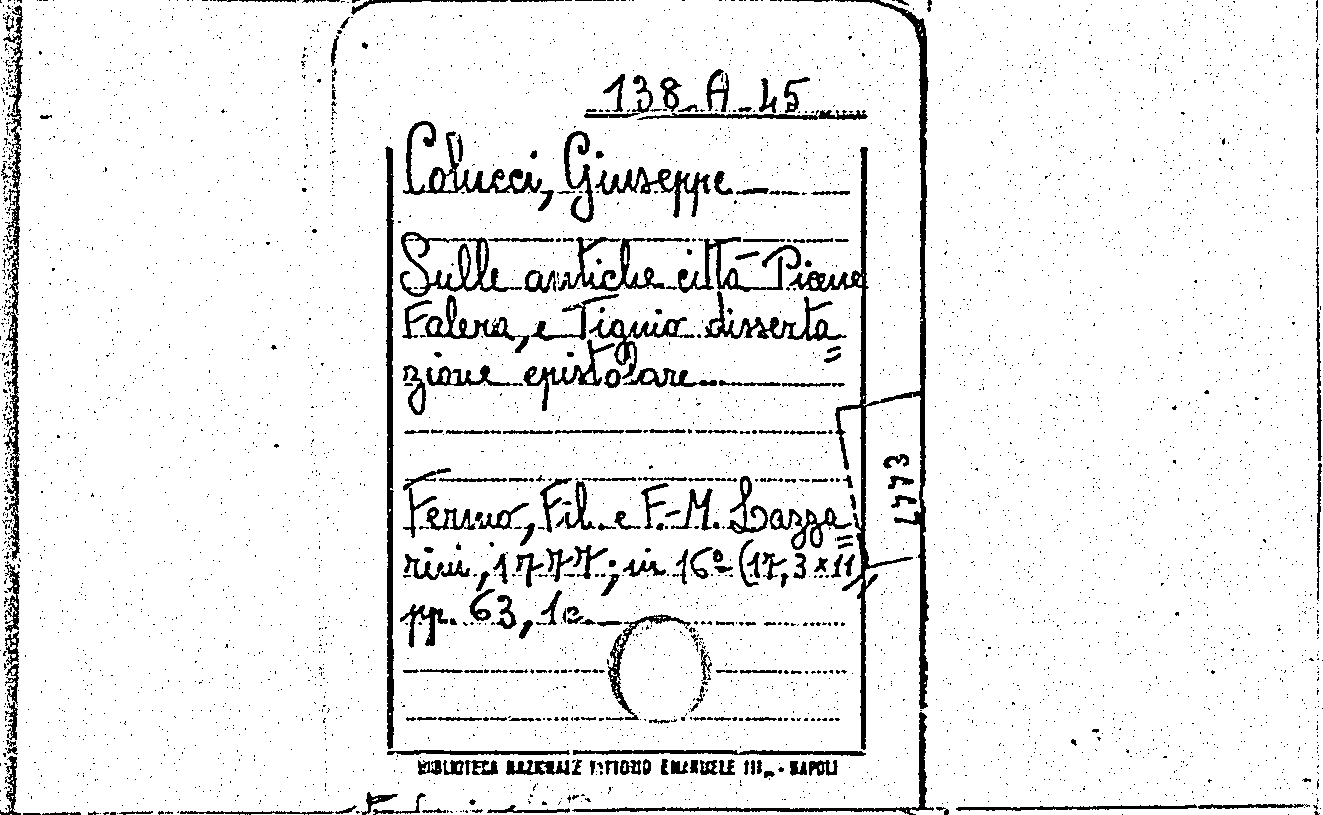 138 A 45
Colucci, Giuseppe
Sulle antiche città Piane
Falera, e Tignio disserta=
zione epistolare...
Fermo, Fil. e F.-M. Lazza=
rini, 1777; in 16º (17,3×11)
pp. 63, 1c.
BIBLIOTECA NAZIONALE VITTORIO EMANUELE III - NAPOLI